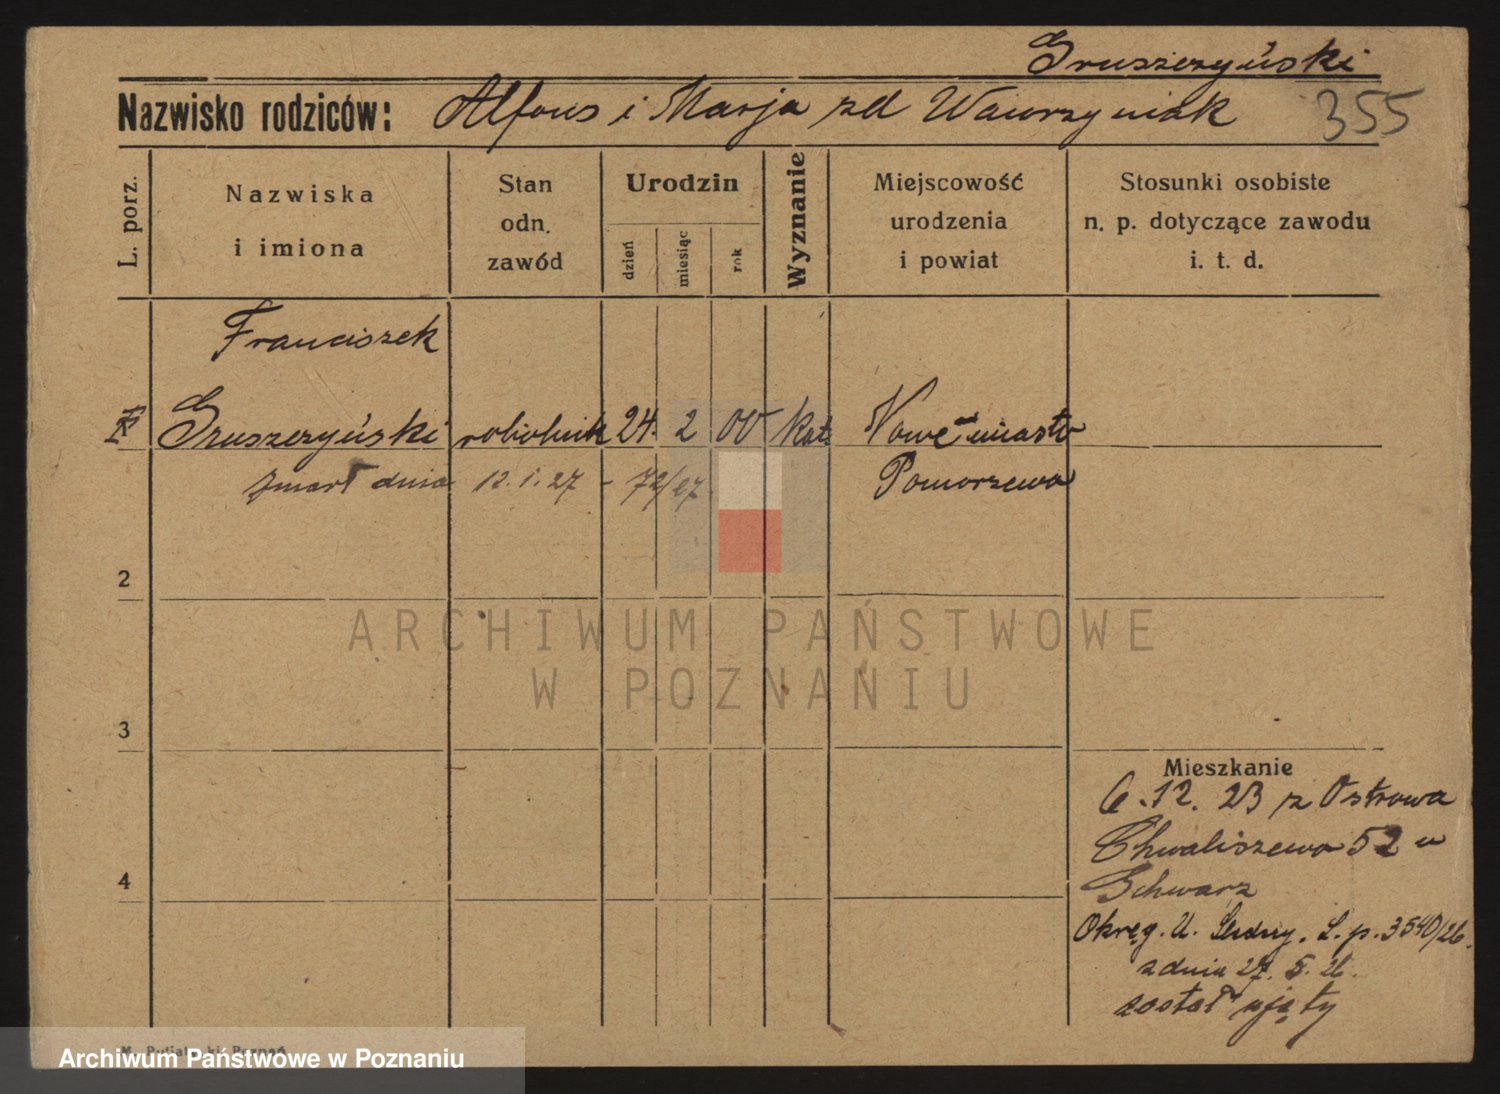 Gruszczyński
Nazwisko rodziców: Alfons i Marja zd Wawrzyniak 355
L. porz.
Nazwiska
i imiona
Stan
odn.
zawód
Urodzin
dzień
miesiąc
rok
Wyznanie
Miejscowość
urodzenia
i powiat
Stosunki osobiste
n. p. dotyczące zawodu
i. t. d.
Franciszek
Gruszczyński robotnik 24. 2 00 kat. Nowe miasto
zmarł dnia 12. 1. 27 - 72/27 Pomorzewo
2
ARCHIWUM PAŃSTWOWE
W POZNANIU
3
Mieszkanie
6.12.23 z Ostrowa
Chwaliszewo 52 u
4
Schwarz
Okręg. U. L. p. 3540/26.
z dnia 27. 5. 26.
został ujęty
Archiwum Państwowe w Poznaniu